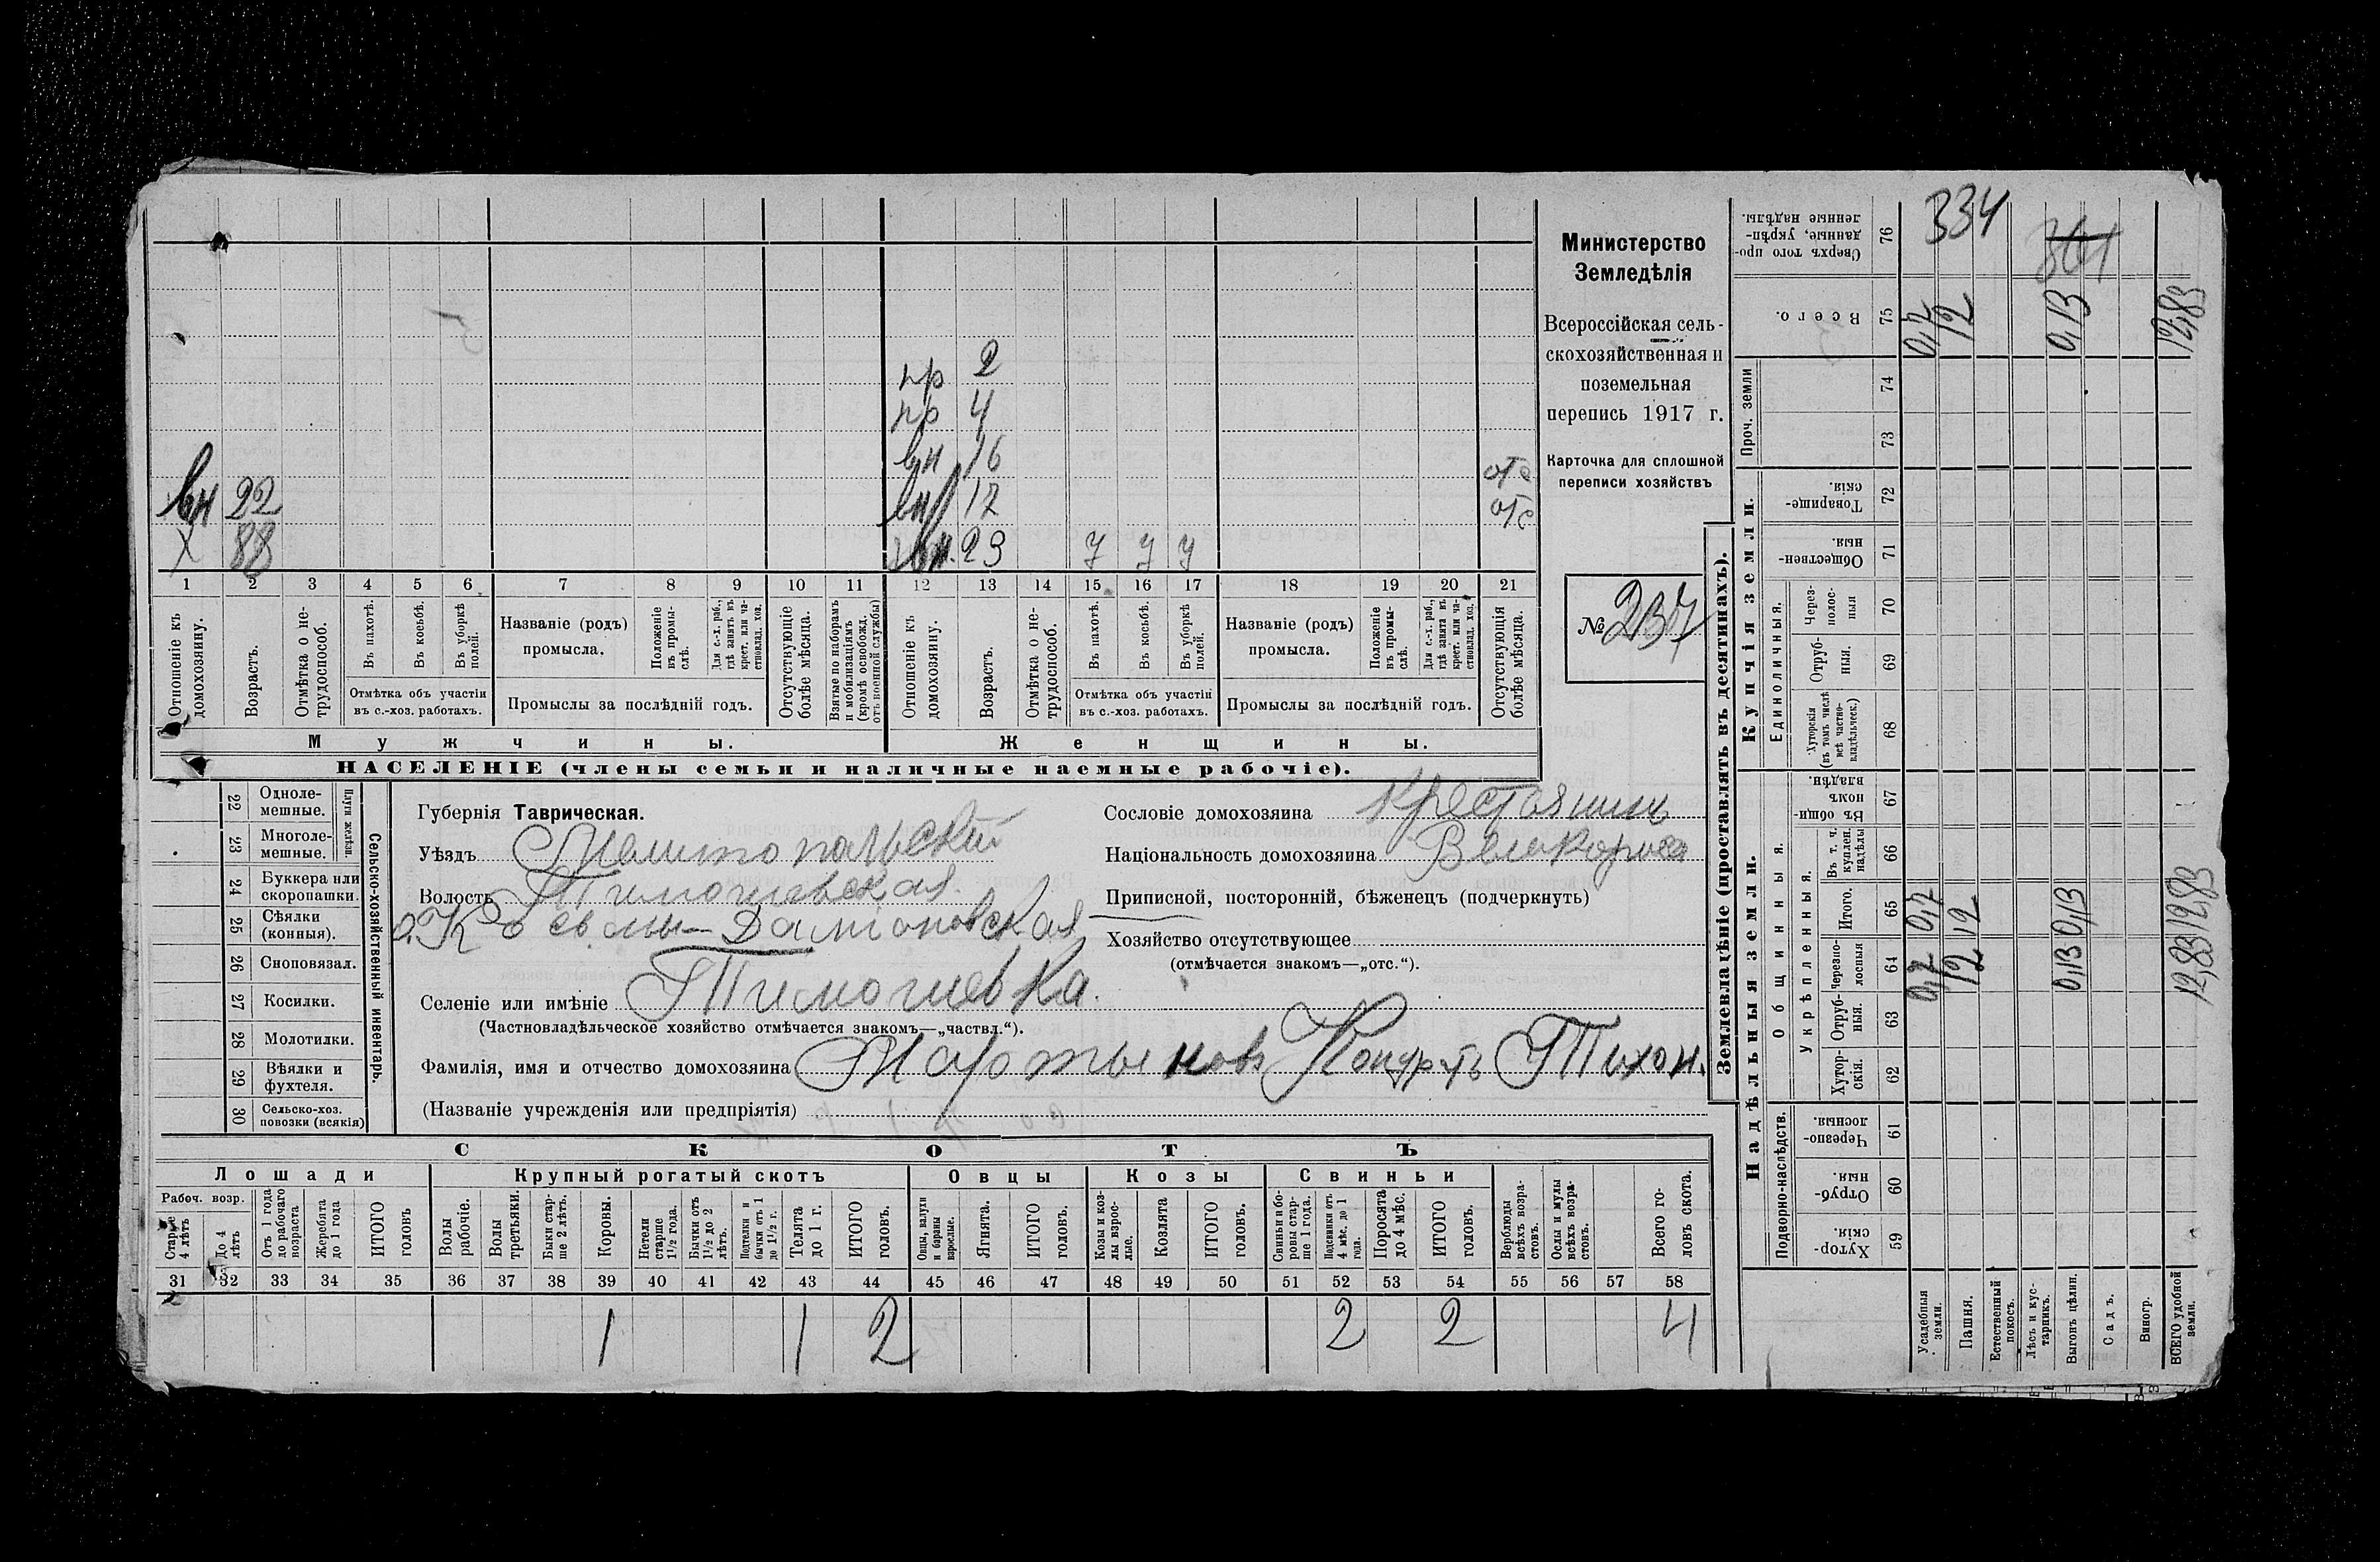 334
361
Министерство
Земледѣлія
Всероссійская сель-
скохозяйственная и
поземельная
перепись 1917 г.
Карточка для сплошной
переписи хозяйствъ
№ 237
пр 2
пр 4
вн 16 отс
вн 22 вн 17 отс
х 88 вн. 23 у у у
1 2 3 4 5 6 7 8 9 10 11 12 13 14 15 16 17 18 19 20 21
Отношеніе къ домохозяину.
Возрастъ.
Отмѣтка о не-трудоспособ.
Въ пахотѣ.
Въ косьбѣ.
Въ уборкѣ полей.
Отмѣтка объ участіи
въ с.-хоз. работахъ.
Названіе (родъ)
промысла.
Положеніе въ промы-слѣ.
Для с.-х. раб., гдѣ занятъ въ крест. или ча-стновлад. хоз.
Промыслы за послѣдній годъ.
Отсутствующіе болѣе мѣсяца.
Взятые по наборамъ и мобилизаціямъ (кромѣ освобожд. отъ военной службы)
Отношеніе къ домохозяину.
Возрастъ.
Отмѣтка о не-трудоспособ.
Въ пахотѣ.
Въ косьбѣ.
Въ уборкѣ полей.
Отмѣтка объ участіи
въ с.-хоз. работахъ.
Названіе (родъ)
промысла.
Положеніе въ промы-слѣ.
Для с.-х. раб., гдѣ занята въ крест. или ча-стновлад. хоз.
Промыслы за послѣдній годъ.
Отсутствующія болѣе мѣсяца.
Мужчины.
Женщины.
НАСЕЛЕНІЕ (члены семьи и наличные наемные рабочіе).
22 Одноле-мешные.
23 Многоле-мешные.
Плуги желѣзн.
24 Буккера или скоропашки.
25 Сѣялки (конныя).
26 Сноповязал.
27 Косилки.
28 Молотилки.
29 Вѣялки и фухтеля.
30 Сельско-хоз. повозки (всякія)
Сельско-хозяйственный инвентарь.
Губернія Таврическая.
Уѣздъ Мелитопольский
Волость Тимошевская.
о. Косьмы-Даміановская
Селеніе или имѣніе Тимошевка.
(Частновладѣльческое хозяйство отмѣчается знакомъ—„частвл.“).
Фамилія, имя и отчество домохозяина Мартыновъ Кондратъ Тихон.
(Названіе учрежденія или предпріятія)
Сословіе домохозяина крестьянинъ
Національность домохозяина Великоросса
Приписной, посторонній, бѣженецъ (подчеркнуть)
Хозяйство отсутствующее
(отмѣчается знакомъ—„отс.“).
СКОТЪ
Лошади
Крупный рогатый скотъ
Овцы
Козы
Свиньи
Рабоч. возр.
Старше 4 лѣтъ
До 4 лѣтъ
Отъ 1 года до рабочаго возраста
Жеребята до 1 года
ИТОГО головъ
Волы рабочіе.
Волы третьяки.
Быки стар-ше 2 лѣтъ.
Коровы.
Нетели старше 1½ года.
Бычки отъ 1½ до 2 лѣтъ.
Подтелки и бычки отъ 1 до 1½ г.
Телята до 1 г.
ИТОГО головъ.
Овцы, валухи и бараны взрослые.
Ягнята.
ИТОГО головъ.
Козы и коз-лы взрос-лые.
Козлята
ИТОГО головъ.
Свиньи и бо-ровы стар-ше 1 года.
Подсвинки отъ 4 мѣс. до 1 года.
Поросята до 4 мѣс.
ИТОГО головъ.
Верблюды всѣхъ возра-стовъ.
Ослы и мулы всѣхъ возра-стовъ.
Всего го-ловъ скота.
31 32 33 34 35 36 37 38 39 40 41 42 43 44 45 46 47 48 49 50 51 52 53 54 55 56 57 58
1 1 2 2 2 4
Землевладѣніе (проставлять въ десятинахъ).
Сверхъ того про-данные, укрѣп-ленные надѣлы. 76
Всего. 75 0,7 12 0,13 12,83
Проч. земли
74
73
Купчія земли.
Товарище-скія. 72
Обществен-ныя. 71
Единоличныя.
Через-полос-ныя 70
Отруб-ныя. 69
Хуторскія (въ томъ числѣ всѣ частно-владѣльческ.) 68
Надѣльныя земли.
Общинныя.
Въ общи-номъ владѣн. 67
Укрѣпленныя.
Въ т. ч. куплен. надѣлы 66
Итого. 65 0,7 12 0,13 12,83
Черезпо-лосныя 64 0,7 12 0,13 12,83
Отруб-ныя. 63
Хутор-скія. 62
Подворно-наслѣдств.
Черезпо-лосныя 61
Отруб-ныя. 60
Хутор-скія. 59
Усадебныя земли.
Пашня.
Естественный покосъ.
Лѣсъ и кус-тарникъ.
Выгонъ цѣлин.
Садъ.
Виногр.
ВСЕГО удобной земли.